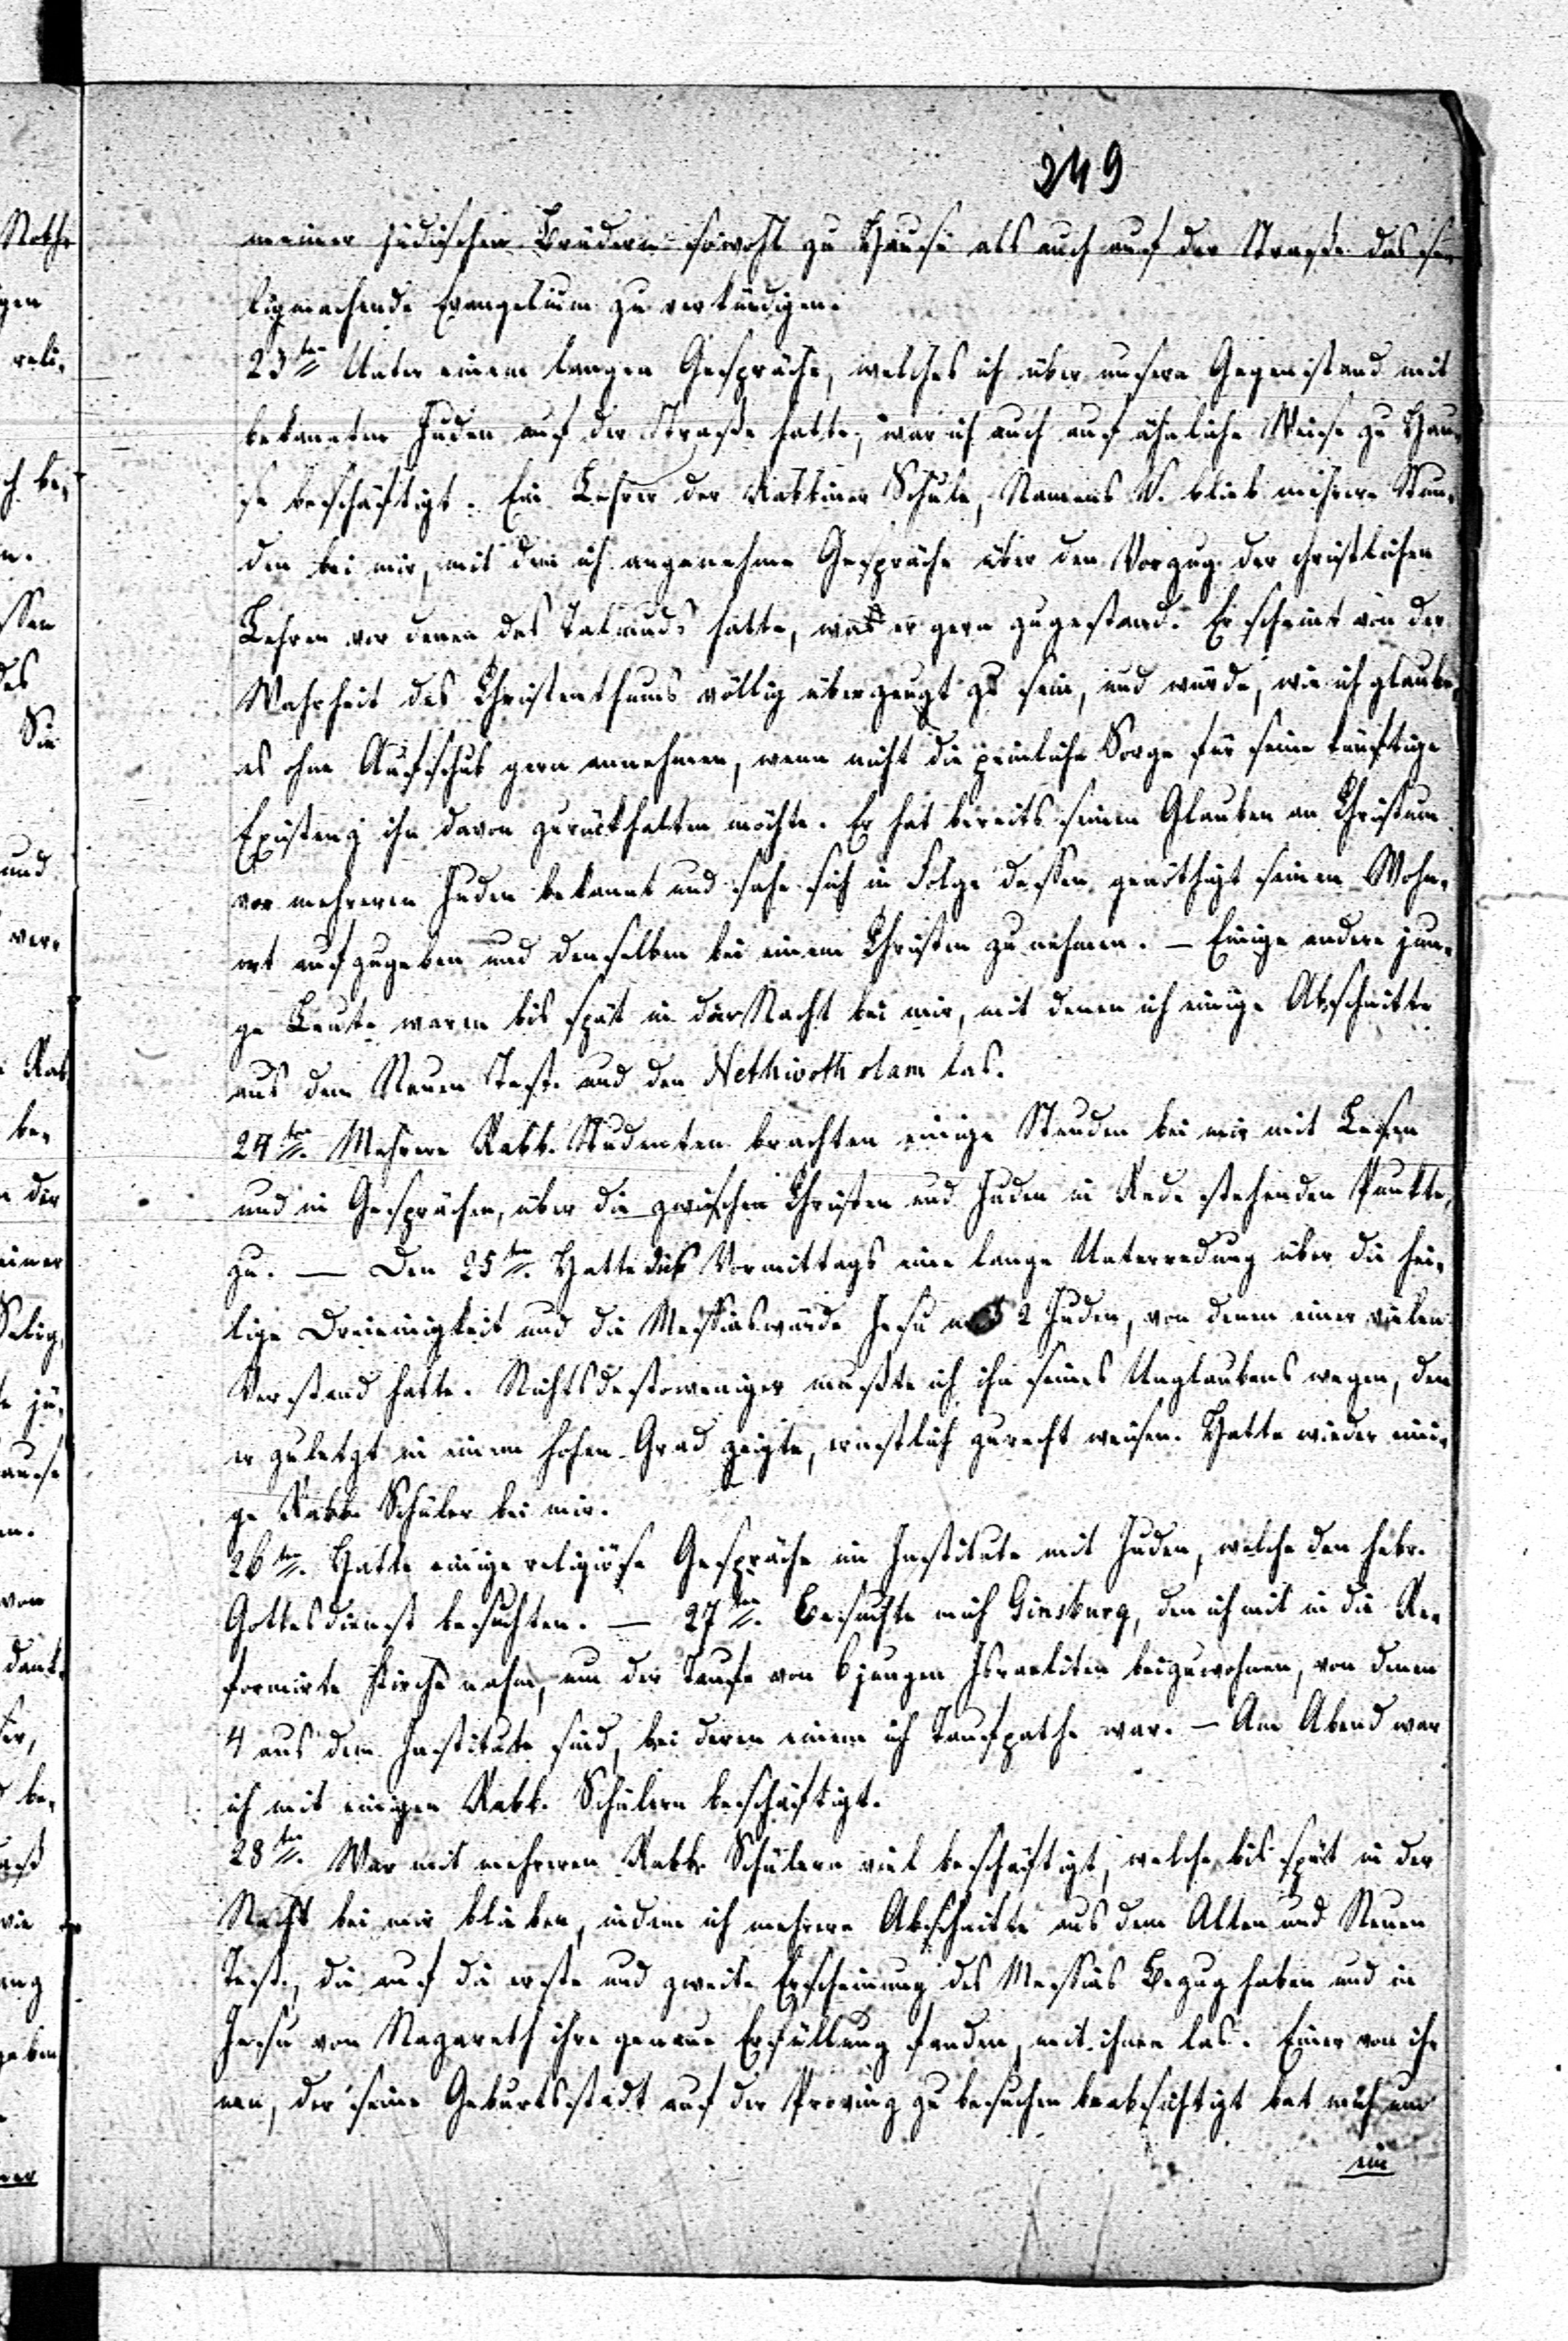 249
meiner jüdischen Brüdern sowohl zu Hause als auch auf der Straße das se-
ligmachende Evangelium zu verkündigen.
23ten Unter einem langen Gespräche, welches ich über unsern Gegenstand mit
bekannten Juden auf der Straße hatte, war ich auch auf ähnliche Weise zu Hau-
se beschäftigt. Ein Lehrer der Rabbiner Schule, Namens V. blieb mehrere Stun-
den bei mir, mit dem ich angenehme Gespräche über den Vorzug der christlichen
Lehren vor denen des Talmuds hatte, was er gern zugestand. Er scheint von der
Wahrheit des Christenthums völlig überzeugt zu sein, und würde, wie ich glaube,
es ohne Aufschub gern annehmen, wenn nicht die peinliche Sorge für seine künftige
Existenz ihn davon zurückhalten möchte. Er hat bereits seinen Glauben an Christum
vor mehreren Juden bekannt und sahe sich in Folge dessen genöthigt seinen Wohn-
ort aufzugeben und denselben bei einem Christen zu nehmen. — Einige andere jun-
ge Leute waren bis spät in der Nacht bei mir, mit denen ich einige Abschnitte
aus dem Neuen Test. und den Nethivoth olam las.
24ten. Mehrere Rabb. Studenten brachten einige Stunden bei mir mit Lesen
und in Gesprächen, über die zwischen Christen und Juden in Rede stehenden Punkte,
zu. — Den 25ten. Hatte des Vormittags eine lange Unterredung über die hei-
lige Dreieinigkeit und die Messiaswürde Jesu mit 2 Juden, von denen einer vielen
Verstand hatte. Nichtsdestoweniger mußte ich ihn seines Unglaubens wegen, den
er zuletzt in einem hohen Grad zeigte, ernstlich zurecht weisen. Hatte wieder eini-
ge Rabb. Schüler bei mir.
26ten. Hatte einige religiöse Gespräche im Institute mit Juden, welche den hebr.
Gottesdienst besuchten. — 27ten. Besuchte mich Ginsburg, den ich mit in die Re-
formirte Kirche nahm, um der Taufe von 6 jungen Israeliten beizuwohnen, von denen
4 aus dem Institute sind, bei deren einem ich Taufpathe war. — Am Abend war
ich mit einigen Rabb. Schülern beschäftigt.
28ten. War mit mehreren Rabb. Schülern viel beschäftigt, welche bis spät in der
Nacht bei mir blieben, indem ich mehrere Abschnitte aus dem Alten und Neuen
Test., die auf die erste und zweite Erscheinung des Messias Bezug haben und in
Jesu von Nazareth ihre genaue Erfüllung fanden, mit ihnen las. Einer von ih-
nen, der seine Geburtsstadt auf der Provinz zu besuchen beabsichtigt bat mich um
ein